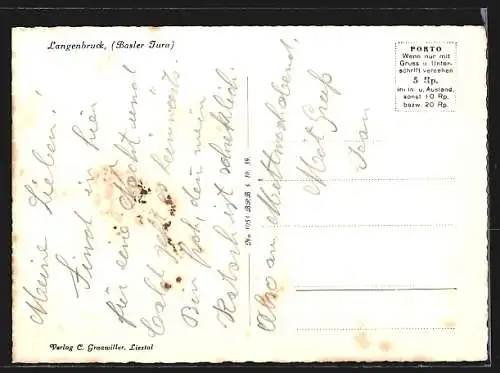 Langenbruck, (Basler Jura)
PORTO
Wenn nur mit
Gruss u. Unter-
schrift versehen
5 Rp.
im In- u. Ausland,
sonst 10 Rp.
bezw. 20 Rp.
Meine Lieben!
Sind in hier
für eine Nacht und
bald geht es heimwärts.
Bin froh, denn mein
ist schrecklich.
Also am Mittwochabend,
Mit Gruß
Jean
Verlag C. Grauwiller, Liestal